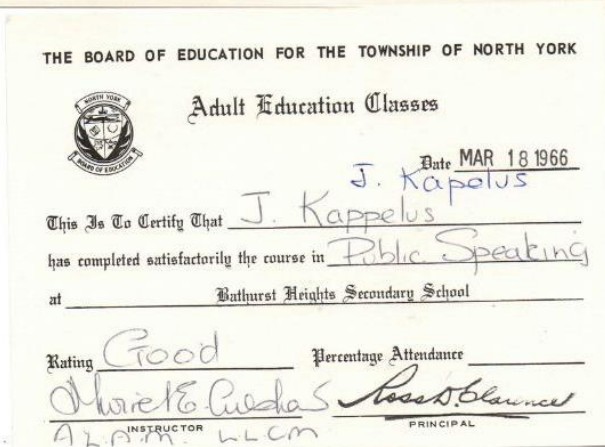 THE BOARD OF EDUCATION FOR THE TOWNSHIP OF NORTH YORK
NORTH YORK
BOARD OF EDUCATION
Adult Education Classes
Date MAR 18 1966
J. Kapelus
This Is To Certify That J. Kappelus
has completed satisfactorily the course in Public Speaking
at Bathurst Heights Secondary School
Rating Good Percentage Attendance
Muriel E.
INSTRUCTOR PRINCIPAL
A.L.A.M. L.L.C.M